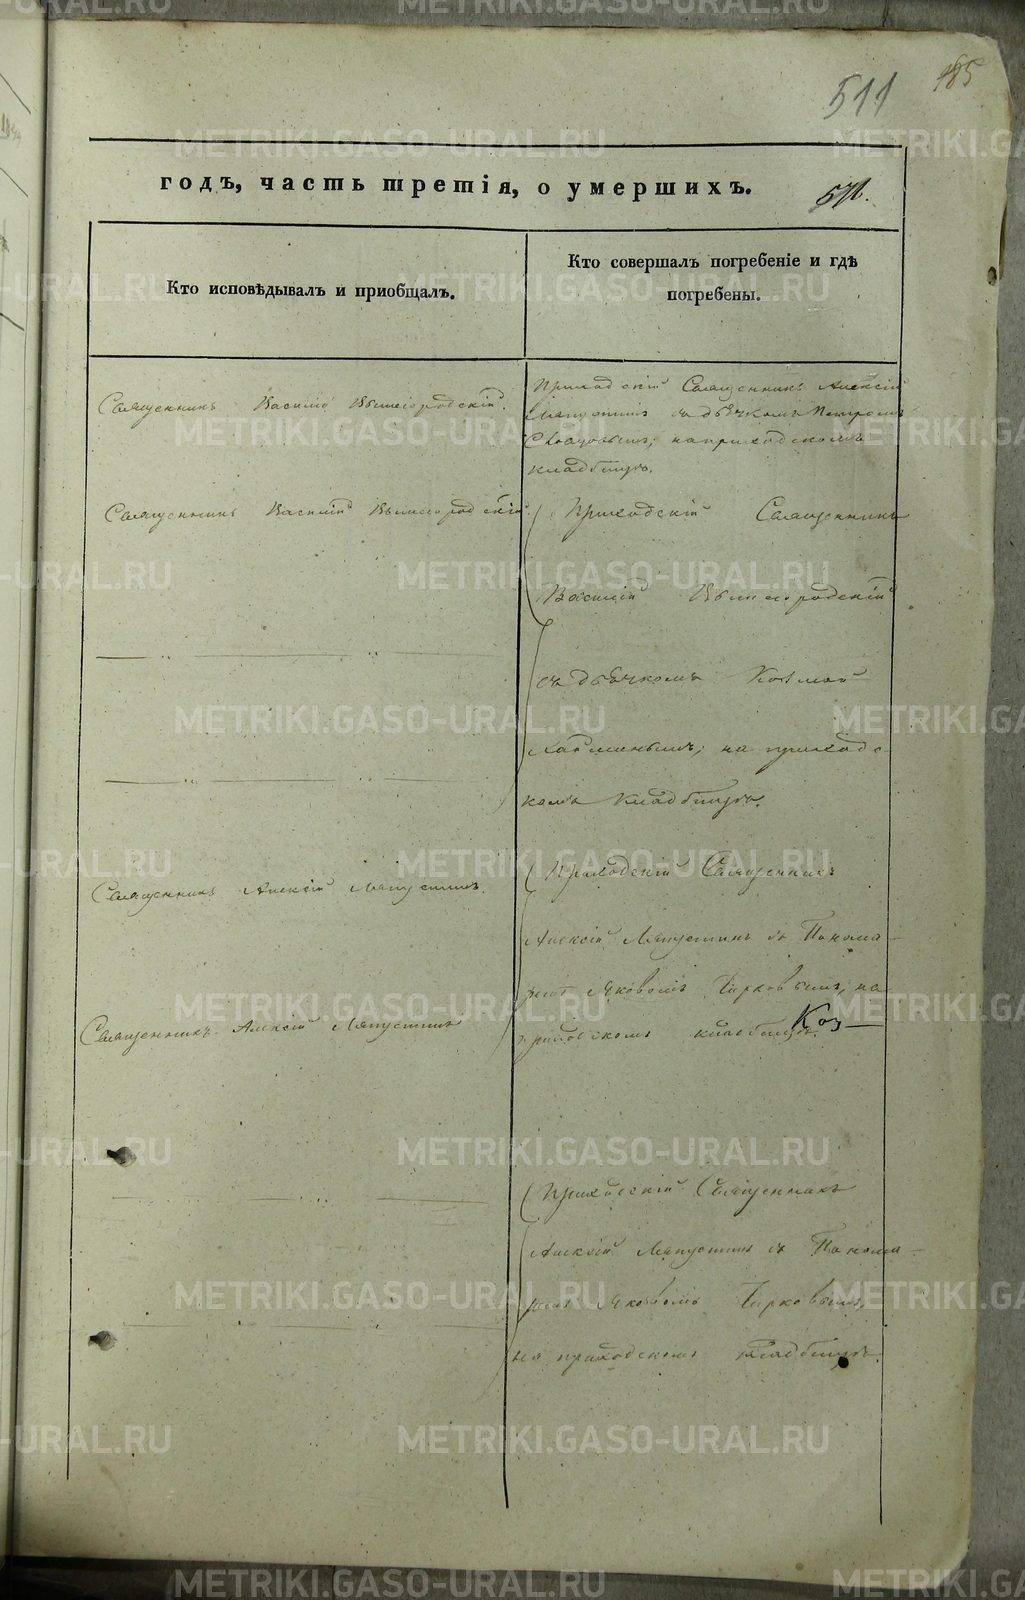 511
185
годъ, часть третія, о умершихъ.
571.
Кто исповѣдывалъ и приобщалъ.
Кто совершалъ погребеніе и гдѣ
погребены.
Священникъ Василій Вышегородскій.
Приходскій Священникъ Алексій
Ляпустинъ съ дьячкомъ Петромъ
на приходскомъ
кладбищѣ.
Священникъ Василій Вышегородскій
Приходскій Священникъ
Василій Вышегородскій
— „ — „ —
съ дьячкомъ Козмой
на приходс-
— „ — „ —
комъ кладбищѣ.
Священникъ Алексій Ляпустинъ.
Приходскій Священникъ
Алексій Ляпустинъ съ Понома-
ремъ Яковомъ Чирковымъ, на
Священникъ Алексій Ляпустинъ
приходскомъ кладбищѣ.
Коз—
— „ — „ —
Приходскій Священникъ
Алексій Ляпустинъ съ Понома-
ремъ Яковомъ Чирковымъ,
— „ — „ —
на приходскомъ кладбищѣ.
METRIKI.GASO-URAL.RU